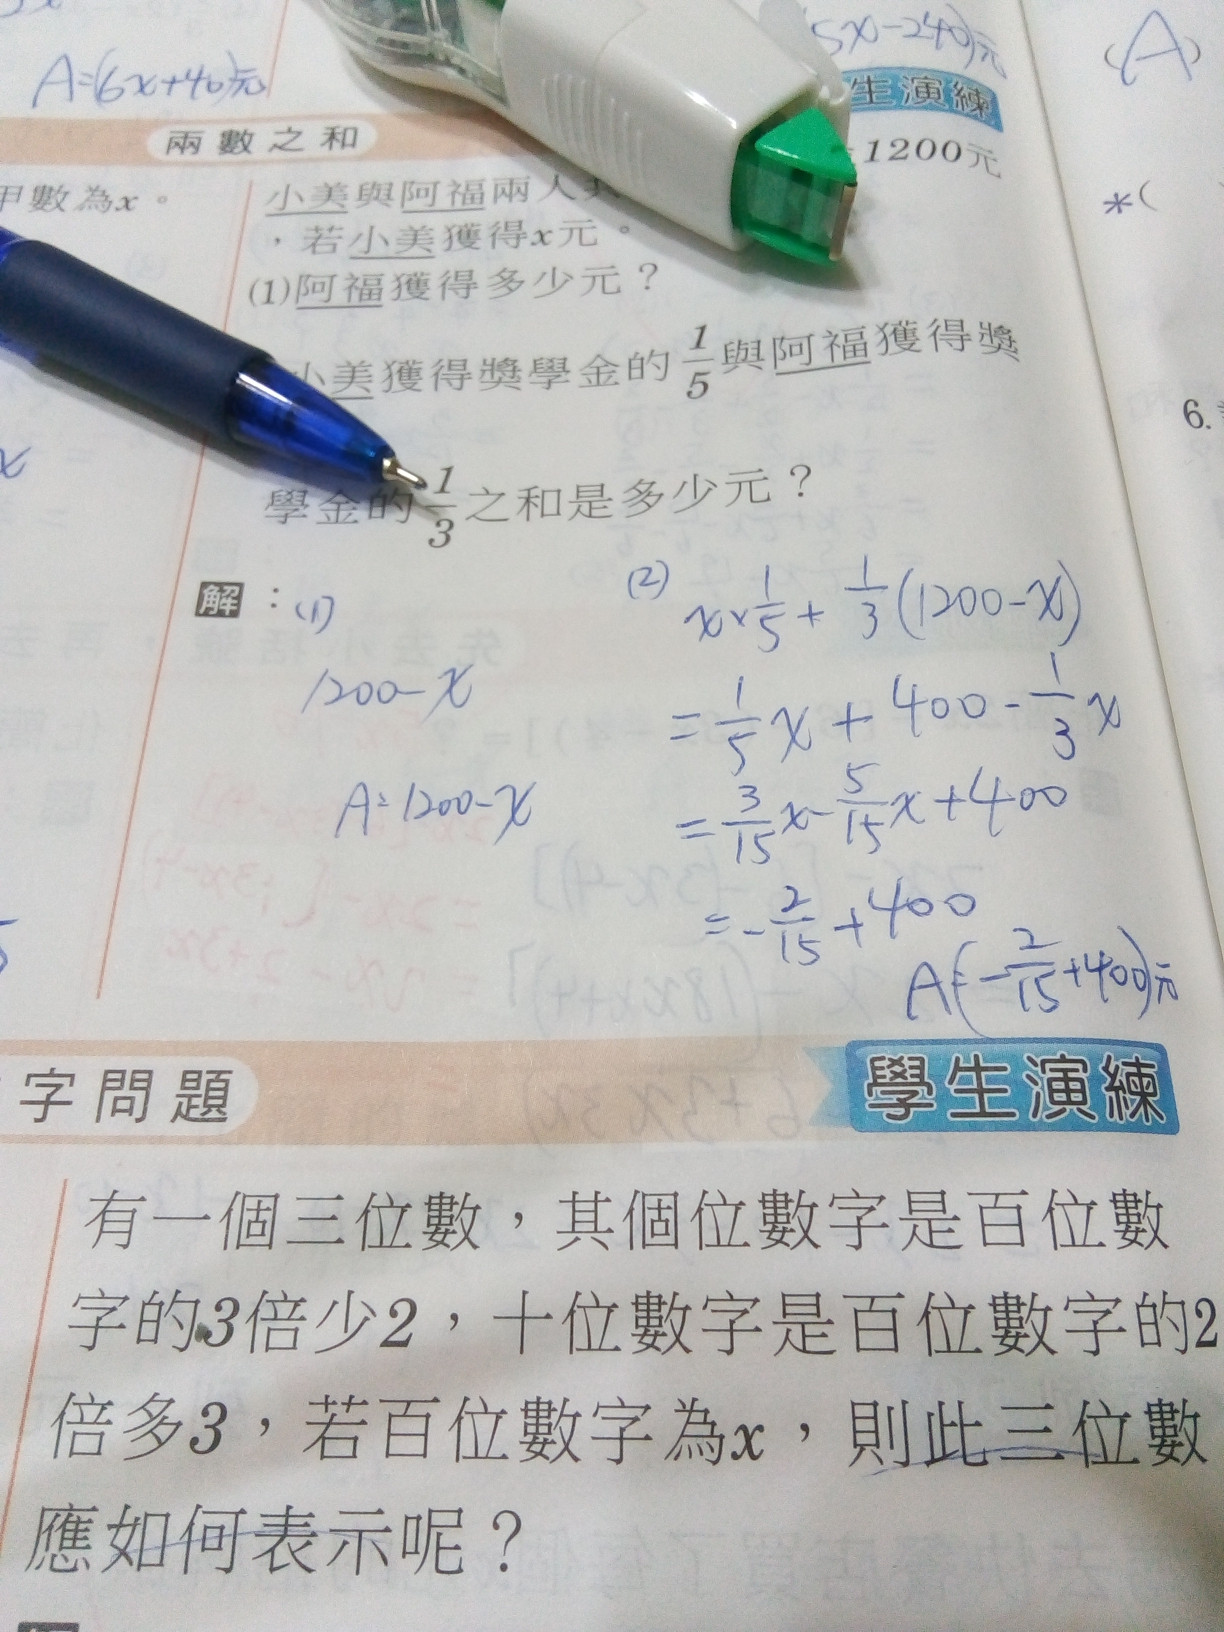 A=(6x+40)元
5x-240)元
(A)
生演練
兩數之和
甲數為x。
小美與阿福兩人
1200元
，若小美獲得x元。
*(
(1)阿福獲得多少元？
小美獲得獎學金的1/5與阿福獲得獎
6.
x
學金的1/3之和是多少元？
解：(1)
1200-x
A=1200-x
(2) x×1/5+1/3(1200-x)
=1/5x+400-1/3x
=3/15x-5/15x+400
=-2/15+400
A=(-2/15+400)元
字問題
學生演練
有一個三位數，其個位數字是百位數
字的3倍少2，十位數字是百位數字的2
倍多3，若百位數字為x，則此三位數
應如何表示呢？